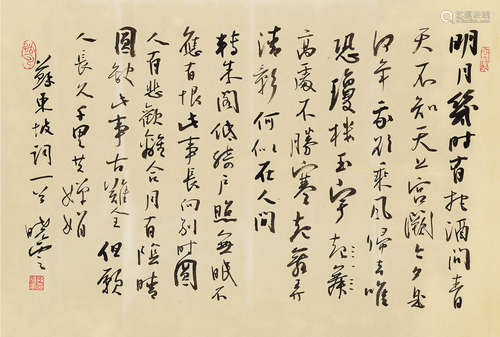 明月幾时有把酒问青
天不知天上宫阙今夕是
何年我欲乘风歸去唯
恐瓊楼玉宇起舞
高處不勝寒起舞弄
清影何似在人间
转朱阁低绮户照無眠不
應有恨此事长向别时圆
人有悲歡離合月有陰晴
圆缺此事古難全但願
人長久千里共嬋娟
蘇東坡词一首